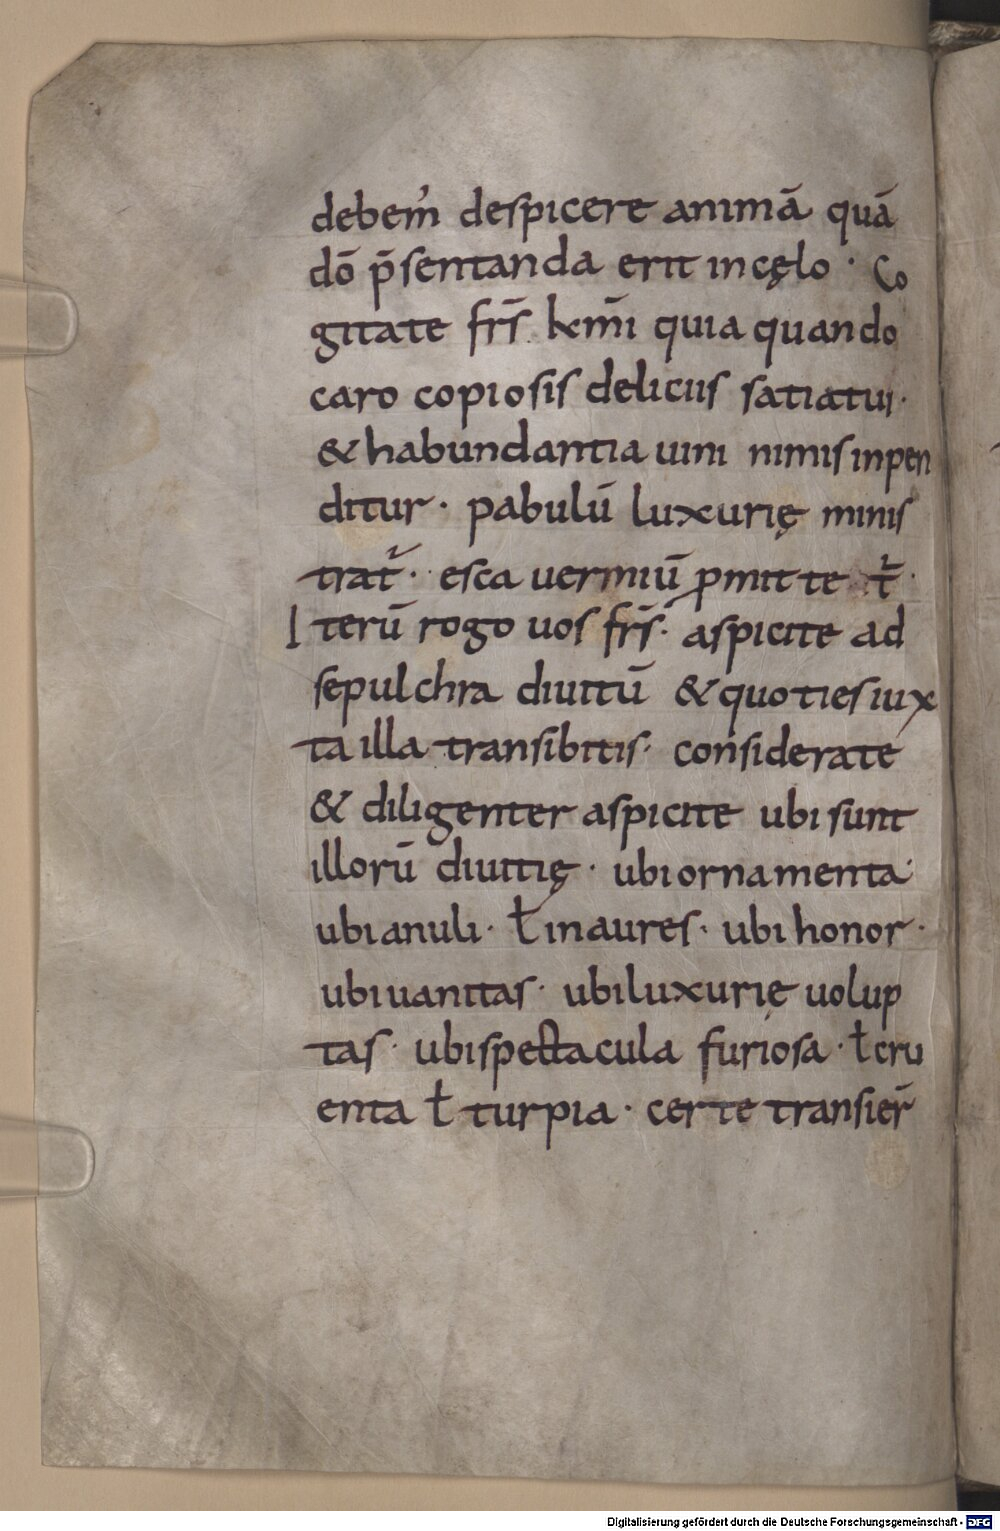 debem᾽ despicere animā quā
dō p̄sentanda erit in cęlo · Co
gitate frs̄ km̄i quia quando
caro copiosis deliciis satiatur·
& habundantia uini nimis inpen
ditur · pabulū luxurię minis
trat᷑ · esca uermiū ꝓmitte t᷑ ·
Iterū rogo uos frs̄· aspicite ad
sepulchra diuitū & quoties iux
ta illa transibitis· considerate
& diligenter aspicite ubi sunt
illorū diuitię · ubi ornamenta·
ubi anuli · ł inaures · ubi honor ·
ubi uanitas · ubi luxurię uolup
tas · ubi spectacula furiosa · ł cru
enta ł turpia · certe transier̄
Digitalisierung gefördert durch die Deutsche Forschungsgemeinschaft - DFG